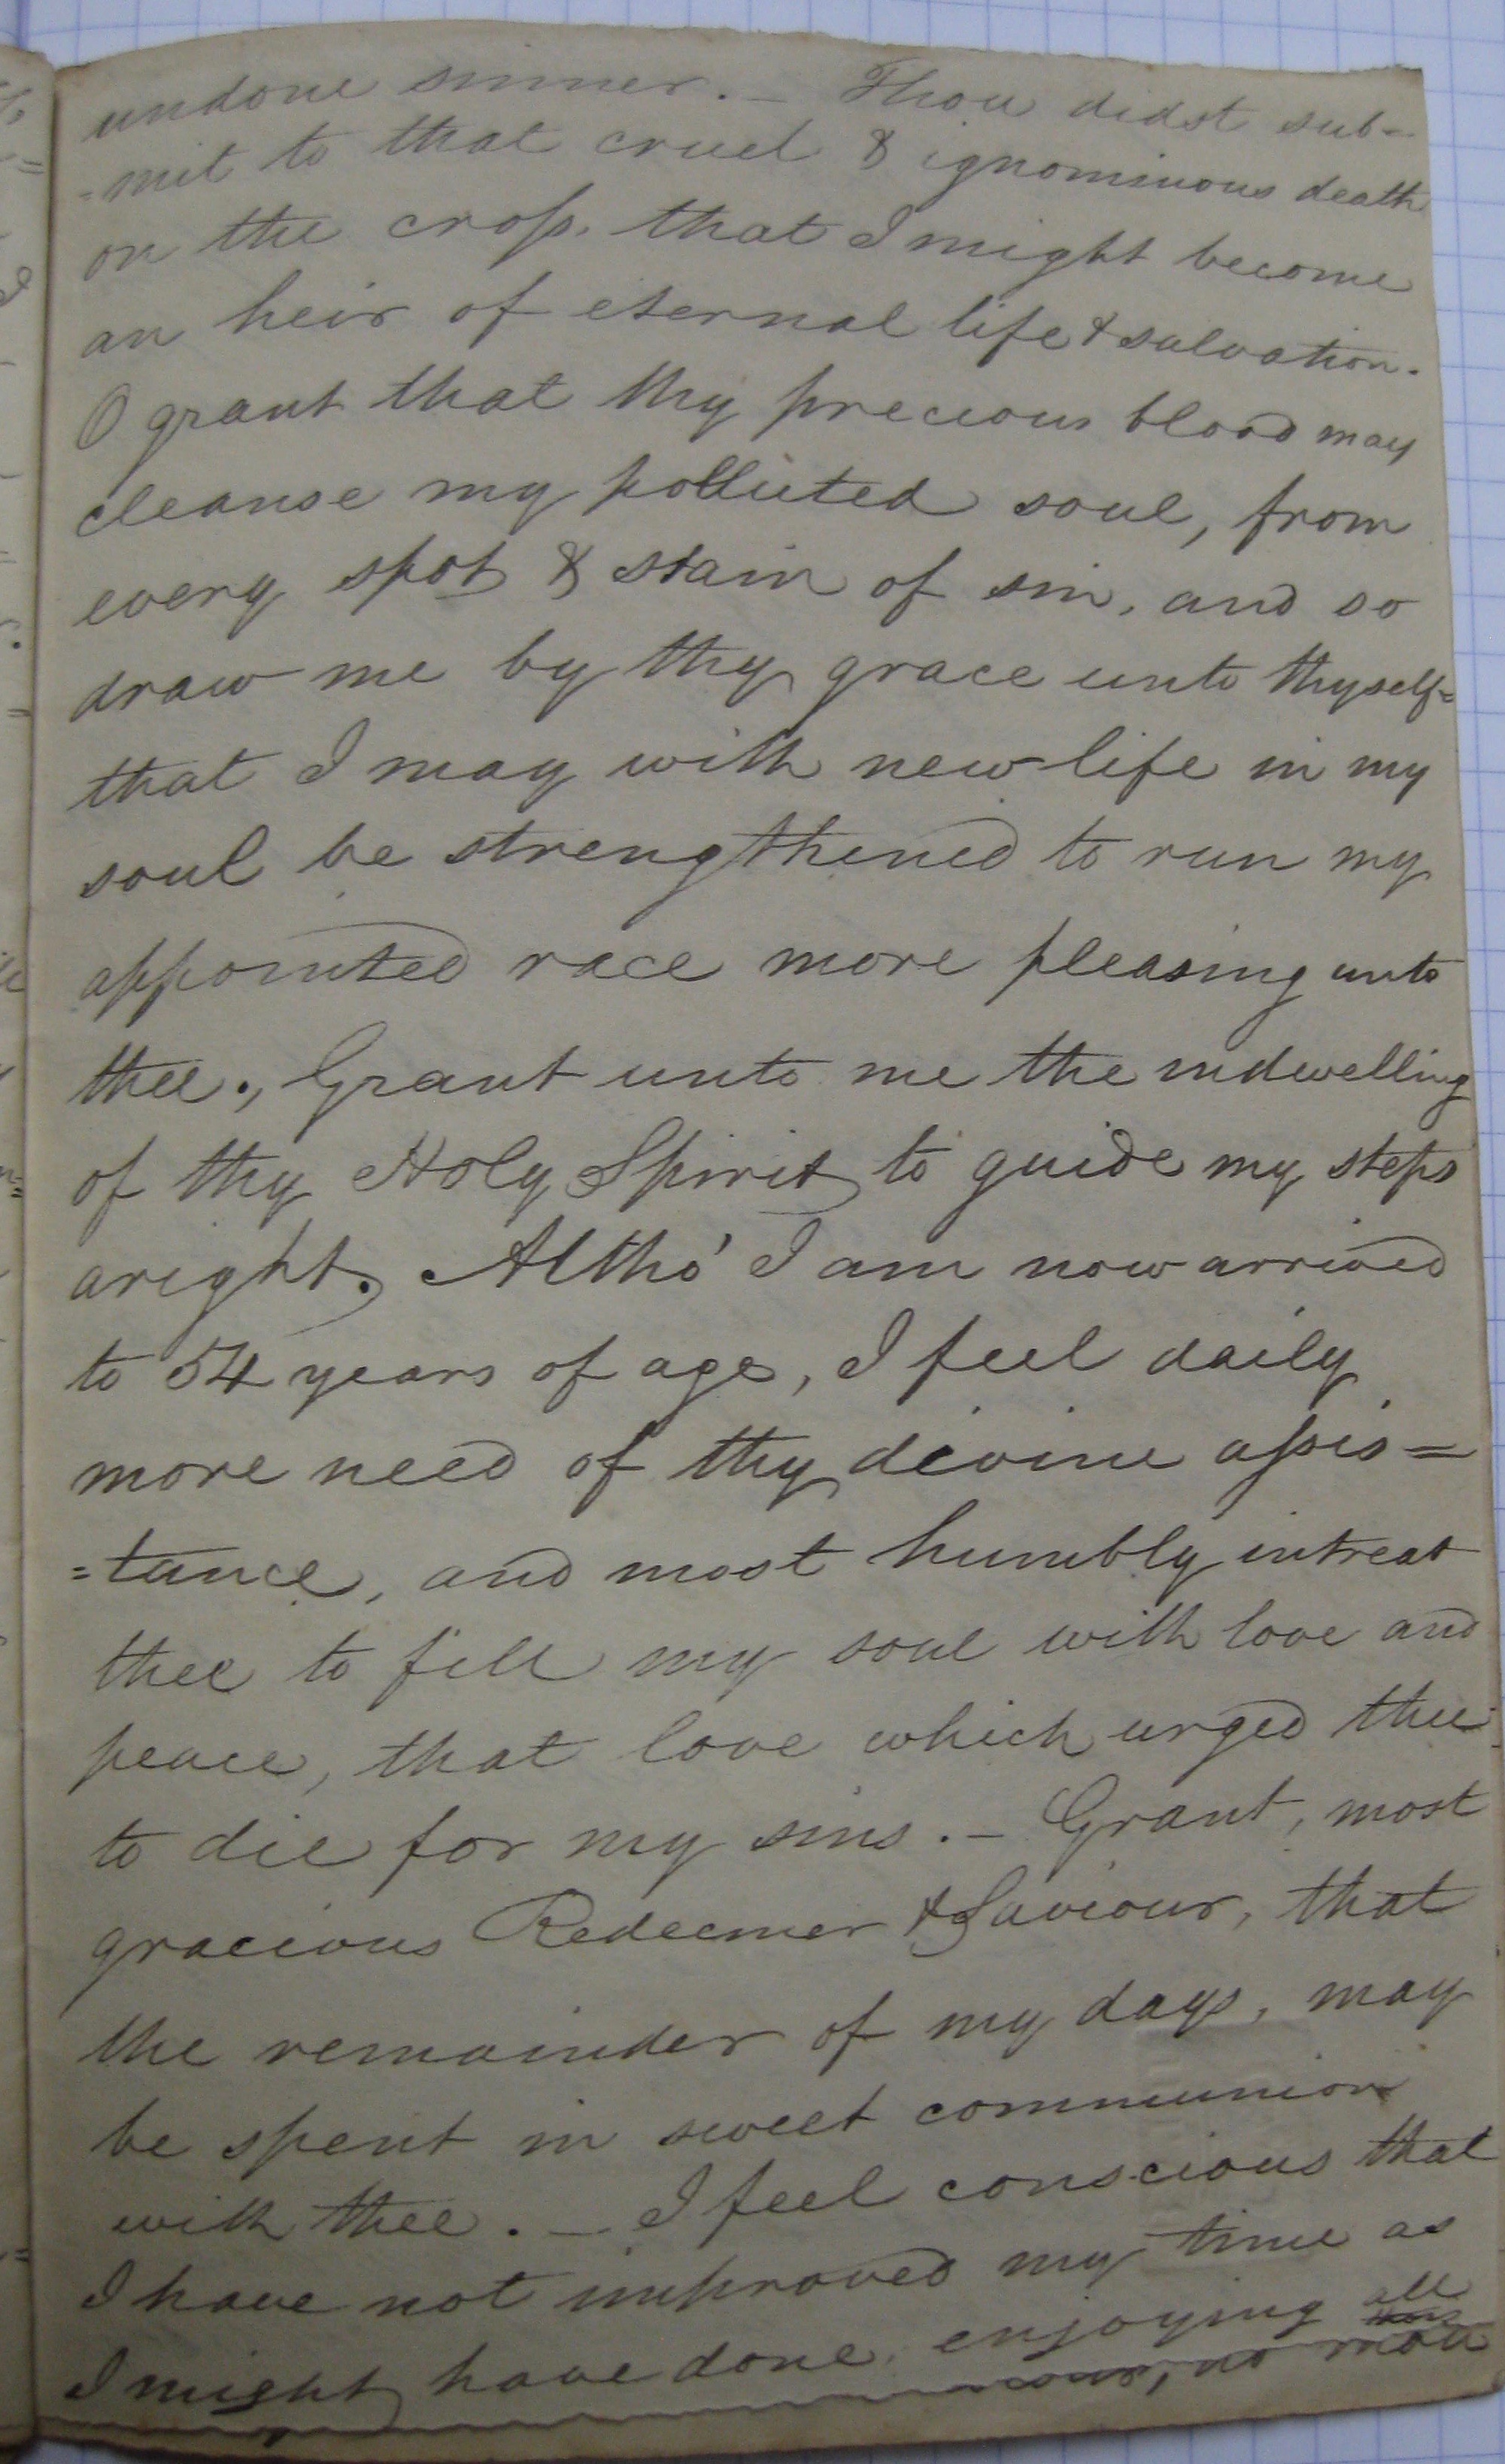 undone sinner. — Thou didst sub-
-mit to that cruel & ignominous death
on the croſs, that I might become
an heir of eternal life & salvation.
O grant that thy precious blood may
cleanse my polluted soul, from
every spot & stain of sin, and so
draw me by thy grace unto thyself-
that I may with new life in my
soul be strengthened to run my
appointed race more pleasing unto
thee., Grant unto me the indwelling
of thy Holy Spirit to guide my steps
aright. Altho' I am now arrived
to 54 years of age, I feel daily
more need of thy divine aſsis=
=tance, and most humbly intreat
thee to fill my soul with love and
peace, that love which urged thee
to die for my sins. — Grant, most
gracious Redeemer & Saviour, that
the remainder of my days, may
be spent in sweet communion
with thee. — I feel conscious that
I have not improved my time as
all
I might have done, enjoying
no